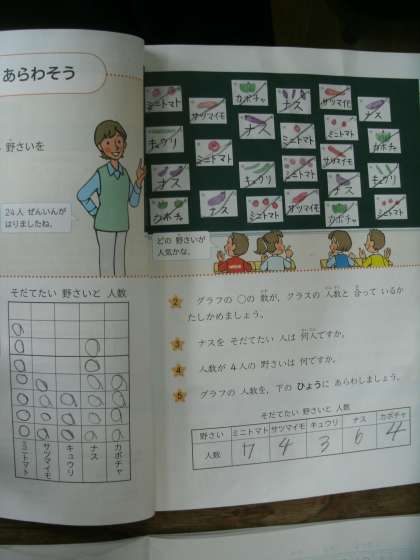 あらわそう
野さいを
24人 ぜんいんが
はりましたね。
ミニトマト
サツマイモ
カボチャ
ナス
サツマイモ
ナス
キュウリ
ミニトマト
ナス
ミニトマト
ミニトマト
カボチャ
ナス
キュウリ
ミニトマト
サツマイモ
ナス
キュウリ
カボチャ
ナス
ミニトマト
サツマイモ
カボチャ
ミニトマト
どの 野さいが
人気かな。
そだてたい 野さいと 人数
ミニトマト
サツマイモ
キュウリ
ナス
カボチャ
2 グラフの ○の 数が、クラスの 人数と 合って いるか
たしかめましょう。
3 ナスを そだてたい 人は 何人ですか。
4 人数が 4人の 野さいは 何ですか。
5 グラフの 人数を、下の ひょうに あらわしましょう。
そだてたい 野さいと 人数
野さい ミニトマト サツマイモ キュウリ ナス カボチャ
人数 7 4 3 6 4